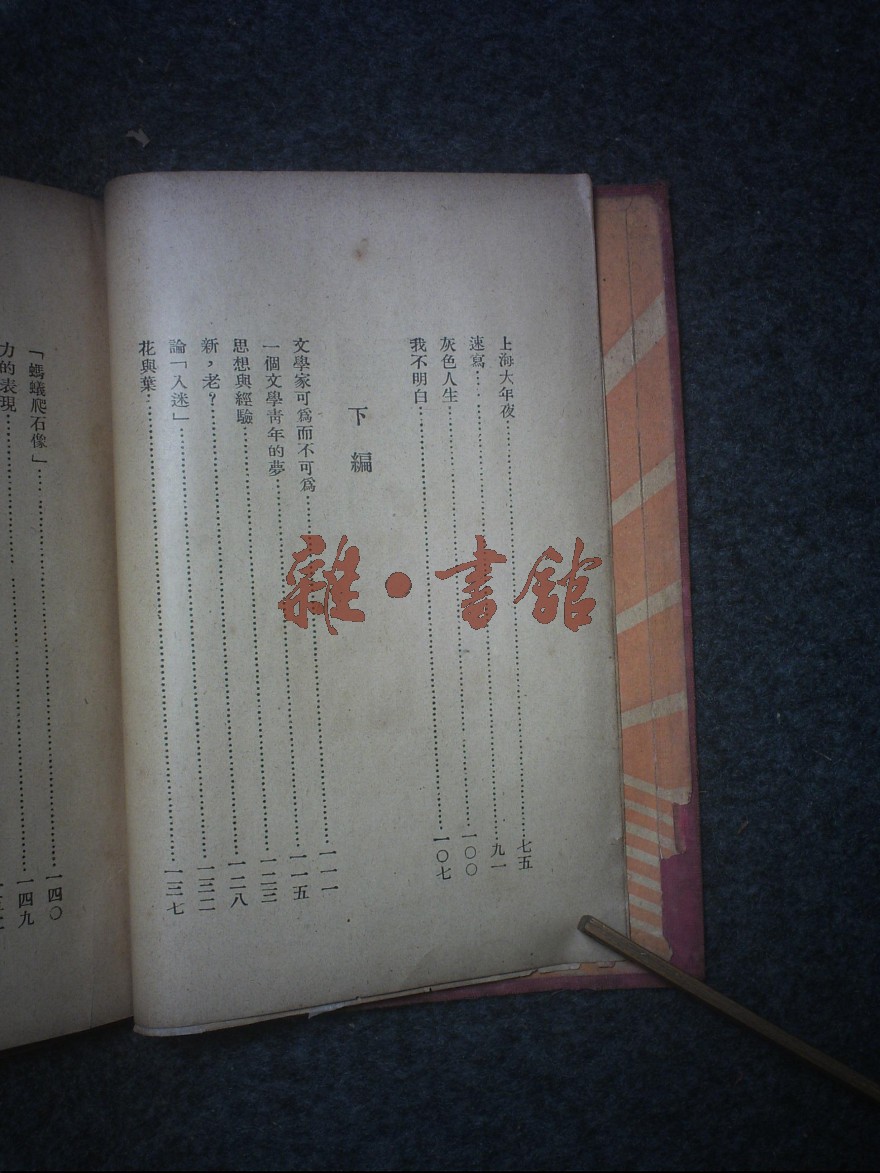 上海大年夜……七五
速寫……九一
灰色人生……一〇〇
我不明白……一〇七
下編
文學家可爲而不可爲……一一一
一個文學靑年的夢……一一五
思想與經驗……一二三
新，老？……一二八
論「入迷」……一三二
花與葉……一三七
「螞蟻爬石像」……一四〇
力的表現……一四九
雜・書館